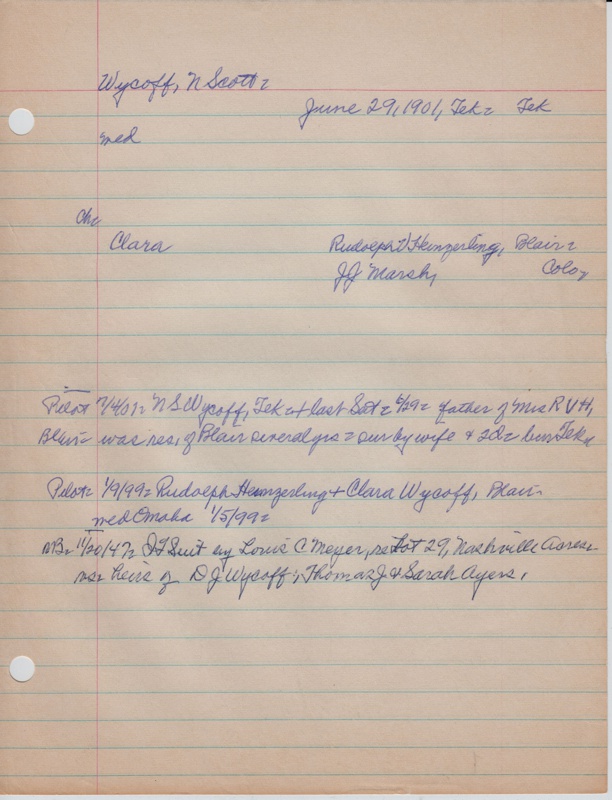 Wycoff, N Scott =
June 29, 1901, Tek = Tek
med
Ch
Clara Rudolph V Hemzerling, Blair =
J J Marsh, Colo,
Pilot 7/4/01 = N S Wycoff, Tek = + last Sat = 6/29 = father of Mrs R V H,
Blair = was res, of Blair several yrs = sur by wife + 2d = bur Tek
Pilot = 1/9/99 = Rudolph Hemzerling + Clara Wycoff, Blair =
med Omaha 1/5/99 =
11/20/47 = Suit by Louis C Meyer, re Lot 29, Nashville Acres =
vs = heirs of D J Wycoff, Thomas J & Sarah Ayers,